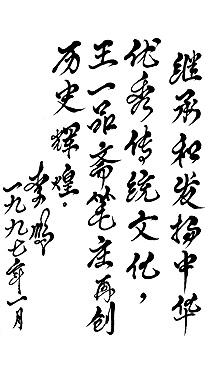 继承和发扬中华
优秀传统文化，
王一品斋笔庄再创
历史辉煌。
李鹏
一九九七年一月